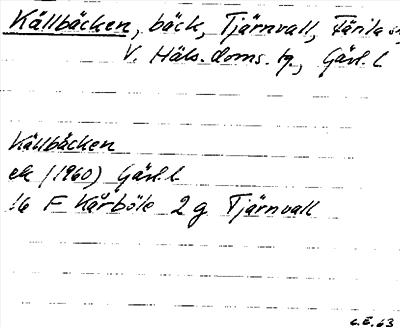 Källbäcken, bäck, Tjärnvall, Färila sn
V. Häls. doms. tg., Gävl. l
Källbäcken
ek (1960) Gävl. l
16 F Kårböle 2 g Tjärnvall
C.E. 63